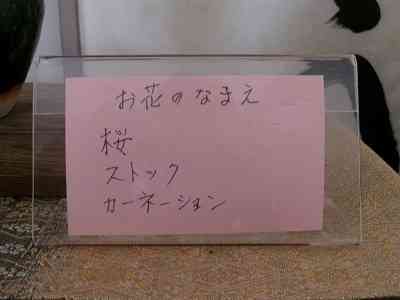 お花のなまえ
桜
ストック
カーネーション